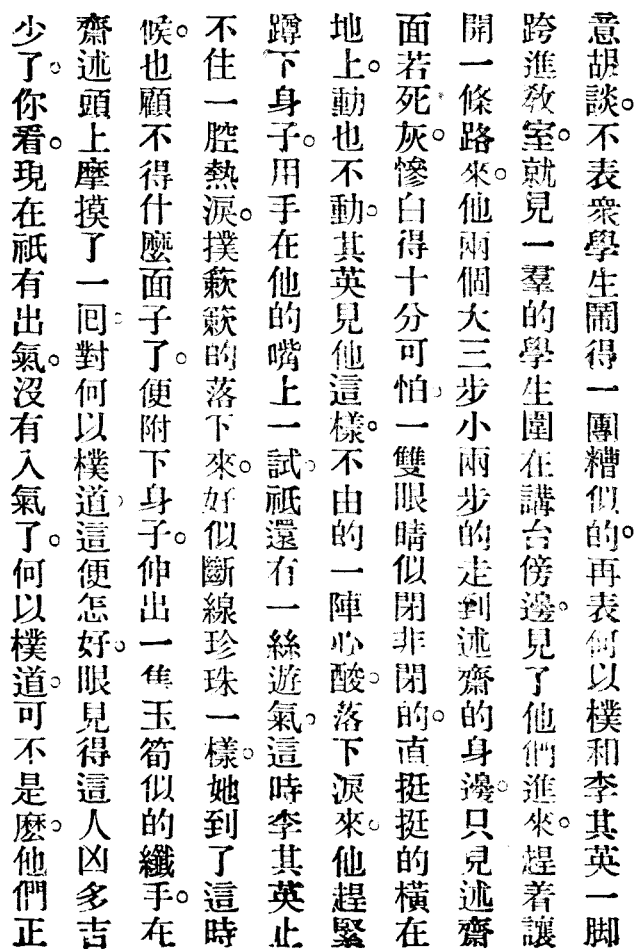 意胡談。不表衆學生鬧得一團糟似的。再表何以樸和李其英一脚
跨進敎室。就見一羣的學生圍在講台傍邊。見了他們進來。趕着讓
開一條路來。他兩個大三步小兩步的走到述齋的身邊。只見述齋
面若死灰。慘白得十分可怕。一雙眼睛似閉非閉的。直挺挺的橫在
地上。動也不動。其英見他這樣。不由的一陣心酸。落下淚來。他趕緊
蹲下身子。用手在他的嘴上一試。祇還有一絲遊氣。這時李其英止
不住一腔熱淚。撲簌簌的落下來。好似斷線珍珠一樣。她到了這時
候。也顧不得什麼面子了。便附下身子。伸出一隻玉筍似的纖手。在
齋述頭上摩摸了一回。對何以樸道。這便怎好。眼見得這人凶多吉
少了。你看。現在祇有出氣。沒有入氣了。何以樸道。可不是麽。他們正